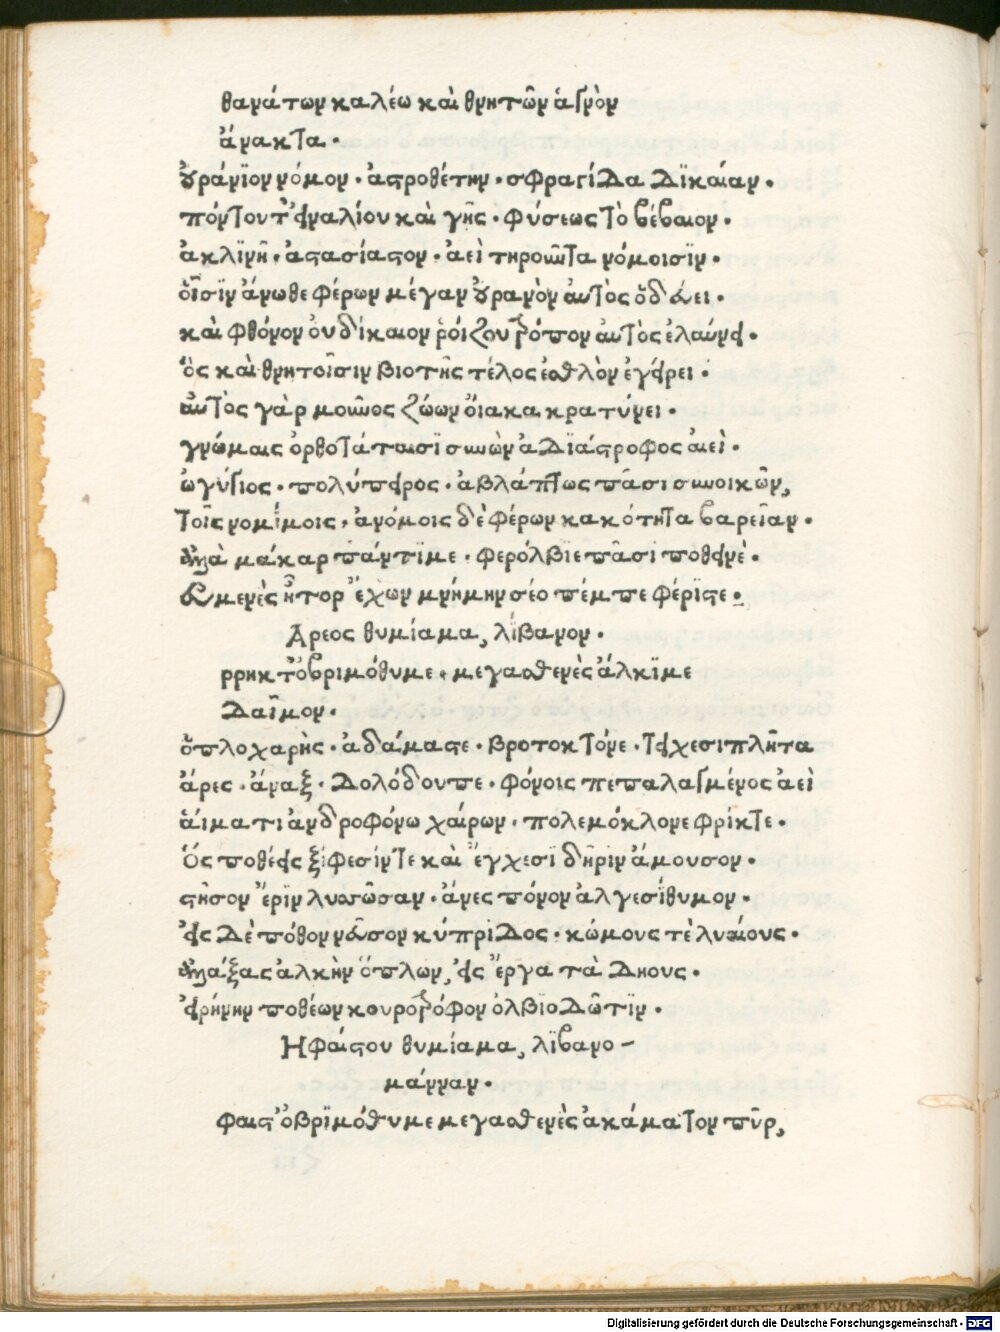 θανάτων καλέω καὶ θνητῶν ἁγνὸν
ἄνακτα.
οὐράνιον νόμον. ἀστροθέτην. σφραγίδα δικαίαν.
πόντου τ' εἰναλίου καὶ γῆς. φύσεως τὸ βέβαιον.
ἀκλινῆ. ἀστασίαστον. ἀεὶ τηροῦντα νόμοισιν.
οἷσιν ἄνωθε φέρων μέγαν οὐρανὸν αὐτὸς ὁδεύει.
καὶ φθόνον οὐ δίκαιον ῥοίζου τρόπον αὐτὸς ἐλαύνει.
ὃς καὶ θνητοῖσιν βιοτῆς τέλος ἐσθλὸν ἐγείρει.
αὐτὸς γὰρ μοῦνος ζώων οἴακα κρατύνει.
γνώμαις ὀρθοτάταισι συνὼν ἀδιάστροφος αἰεὶ.
ὠγύγιος. πολύπειρος. ἀβλάπτως πᾶσι συνοικῶν,
τοῖς νομίμοις, ἀνόμοις δὲ φέρων κακότητα βαρεῖαν.
ἀλλὰ μάκαρ πάντιμε. φερόλβιε πᾶσι ποθεινὲ.
εὐμενὲς ἦτορ ἔχων μνήμην σέο πέμπε φέριστε.
Αρεος θυμίαμα, λίβανον.
ρρηκτ' ὀβριμόθυμε. μεγασθενὲς ἄλκιμε
δαῖμον.
ὁπλοχαρὴς. ἀδάμαστε. βροτοκτόνε. τειχεσιπλῆτα
ἄρες. ἄναξ. δολόδουπε. φόνοις πεπαλαγμένος ἀεὶ
αἵματι ἀνδροφόνω χαίρων. πολεμόκλονε φρίκτε.
ὃς ποθέεις ξίφεσίν τε καὶ ἔγχεσι δῆριν ἄμουσον.
στῆσον ἔριν λυσσῶσαν. ἄνες πόνον ἀλγεσίθυμον.
εἰς δὲ πόθον νεῦσον κύπριδος. κώμους τὲ λυαίους.
ἀλλάξας ἀλκὴν ὅπλων, εἰς ἔργα τὰ Δηους.
εἰρήνην ποθέων κουροτρόφον ὀλβιοδῶτιν.
Ηφαίστου θυμίαμα, λιβανο-
μάνναν.
φαιστ' ὀβριμόθυμε μεγασθενὲς ἀκάματον πῦρ,
Digitalisierung gefördert durch die Deutsche Forschungsgemeinschaft - DFG